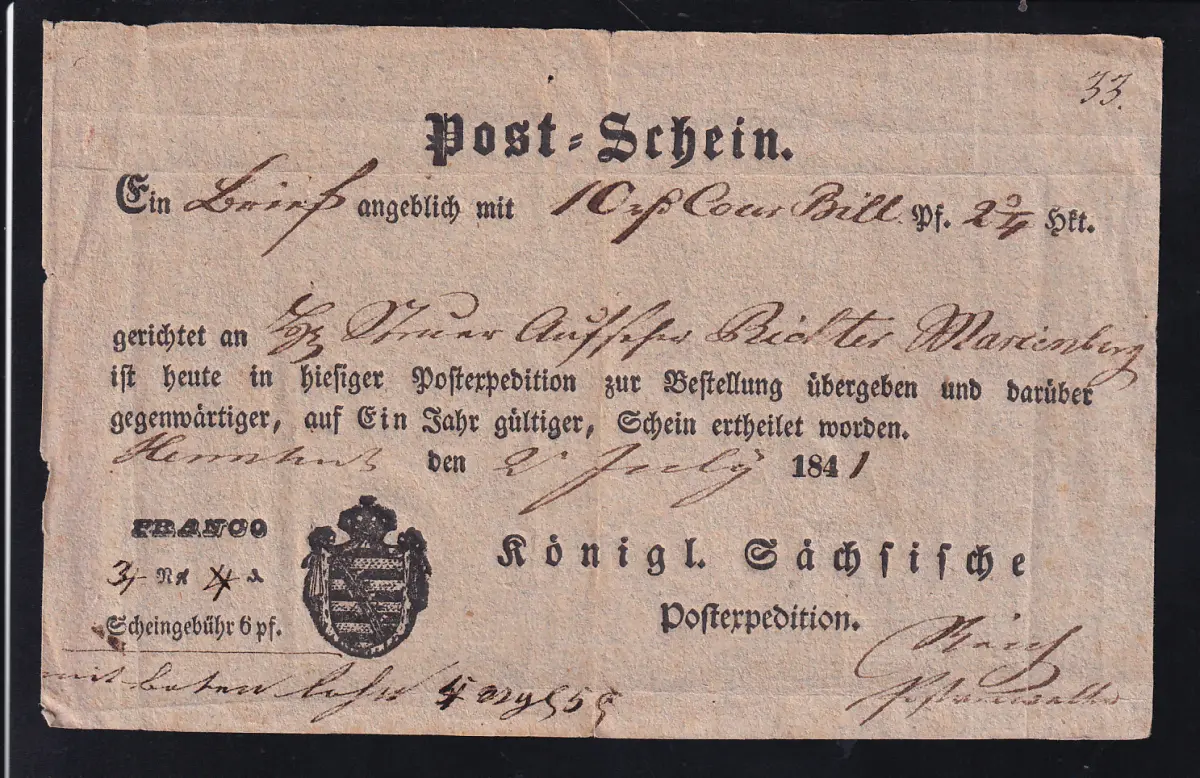 33.
Post-Schein.
Ein Brief angeblich mit 10 rß Cour Bill Pf. 2 3/4 Hkt.
gerichtet an Steuer Aufseher Richter Marienberg
ist heute in hiesiger Postexpedition zur Bestellung übergeben und darüber
gegenwärtiger, auf Ein Jahr gültiger, Schein ertheilet worden.
Herrnhut den 2 July 1841
FRANCO
Königl. Sächsische
3 Ngl
Scheingebühr 6 pf.
Postexpedition.
mit boten lohn 4 ngl 5